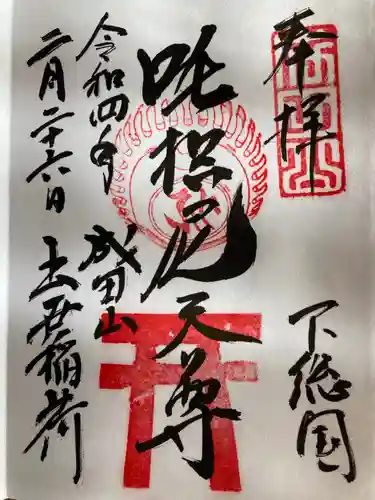 奉拝
下総国
吒枳尼天尊
令和四年
二月二十六日
成田山
出世稲荷